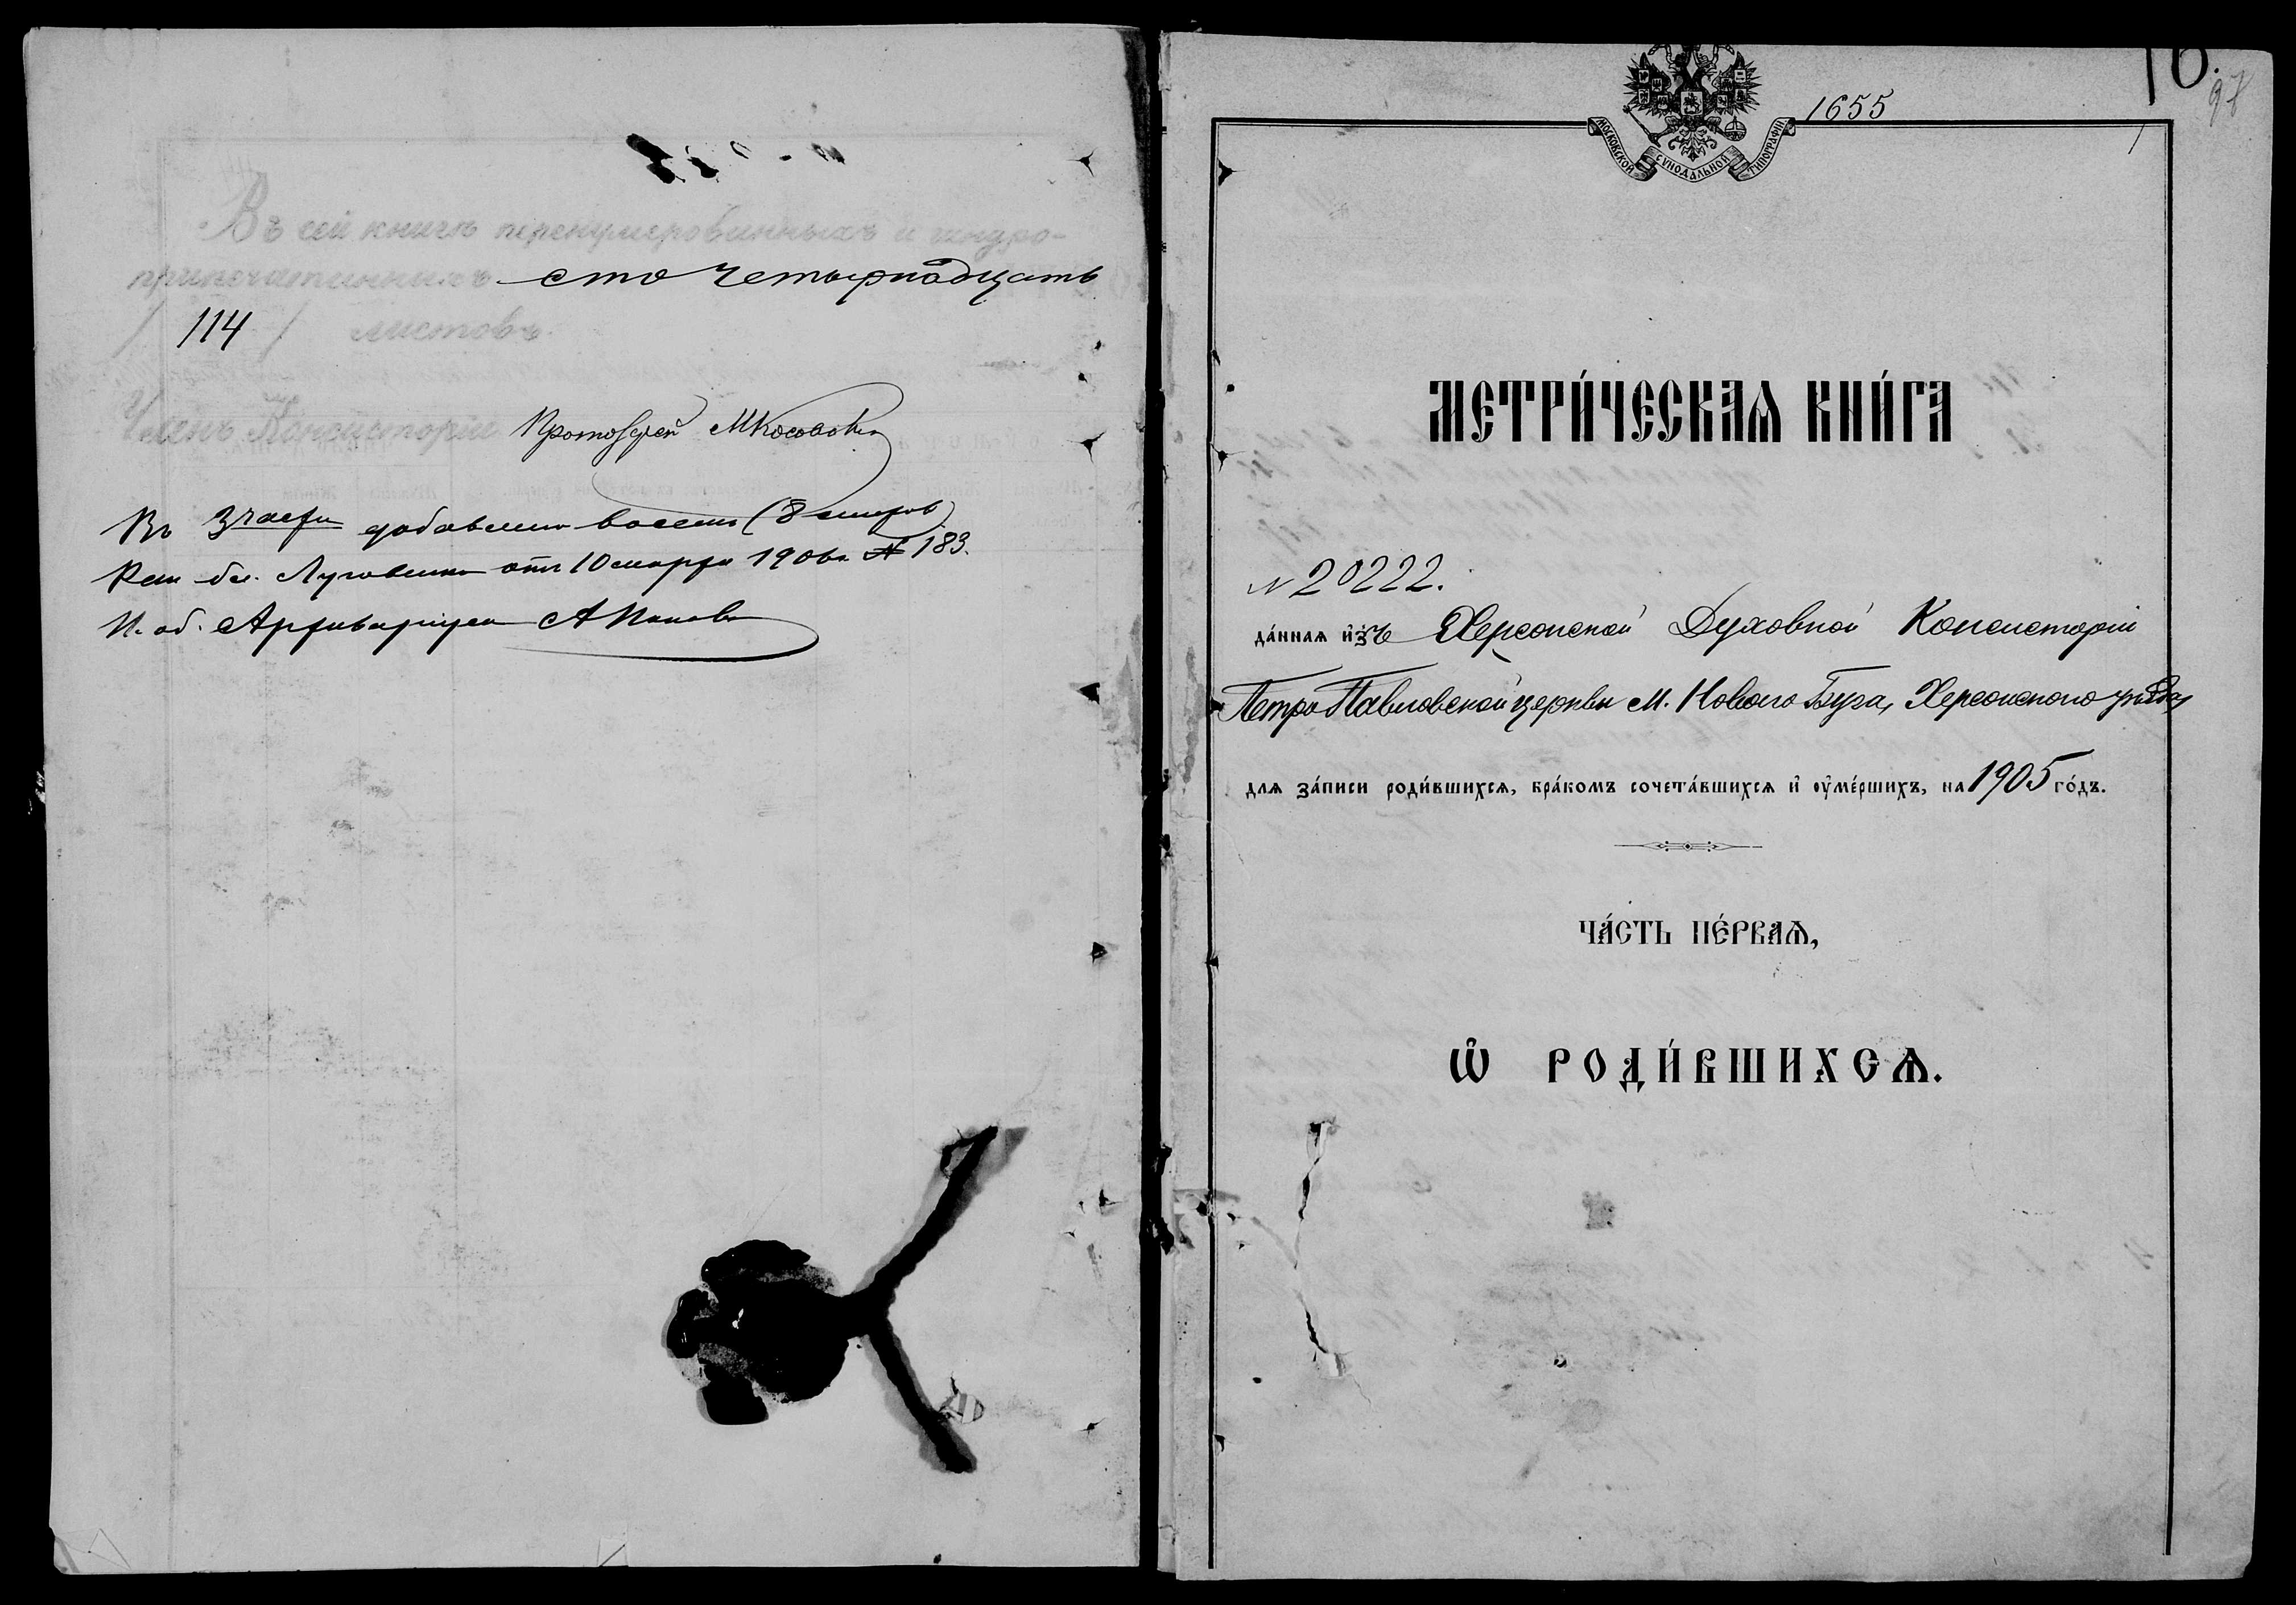 Въ сей книгѣ перенумерованныхъ и шнуро-
припечатанныхъ сто четырнадцать
/ 114 / листовъ.
Членъ Консисторіи Протоіерей М Косовскій
Въ 3 части добавлено восемь (8 листов)
бл. отъ 10 марта 1906 г. № 183.
И. об. Архиваріуса А Попов
1655
16.
98
1
МОСКОВСКОЙ СѴНОДАЛЬНОЙ ТИПОГРАФІИ
МЕТРИ́ЧЕСКАѦ КНИ́ГА
№ 20222.
да́ннаѧ и҆зъ Херсонской Духовной Консисторіи
Петро Павловской церкви м. Новаго Буга, Херсонского уѣзда,
длѧ за́писи роди́вшихсѧ, бра́комъ сочета́вшихсѧ и҆ оу҆ме́ршихъ, на 1905 го́дъ.
ЧА́СТЬ ПЕ́РВАѦ,
Ѡ҆ РОДИ́ВШИХСѦ.